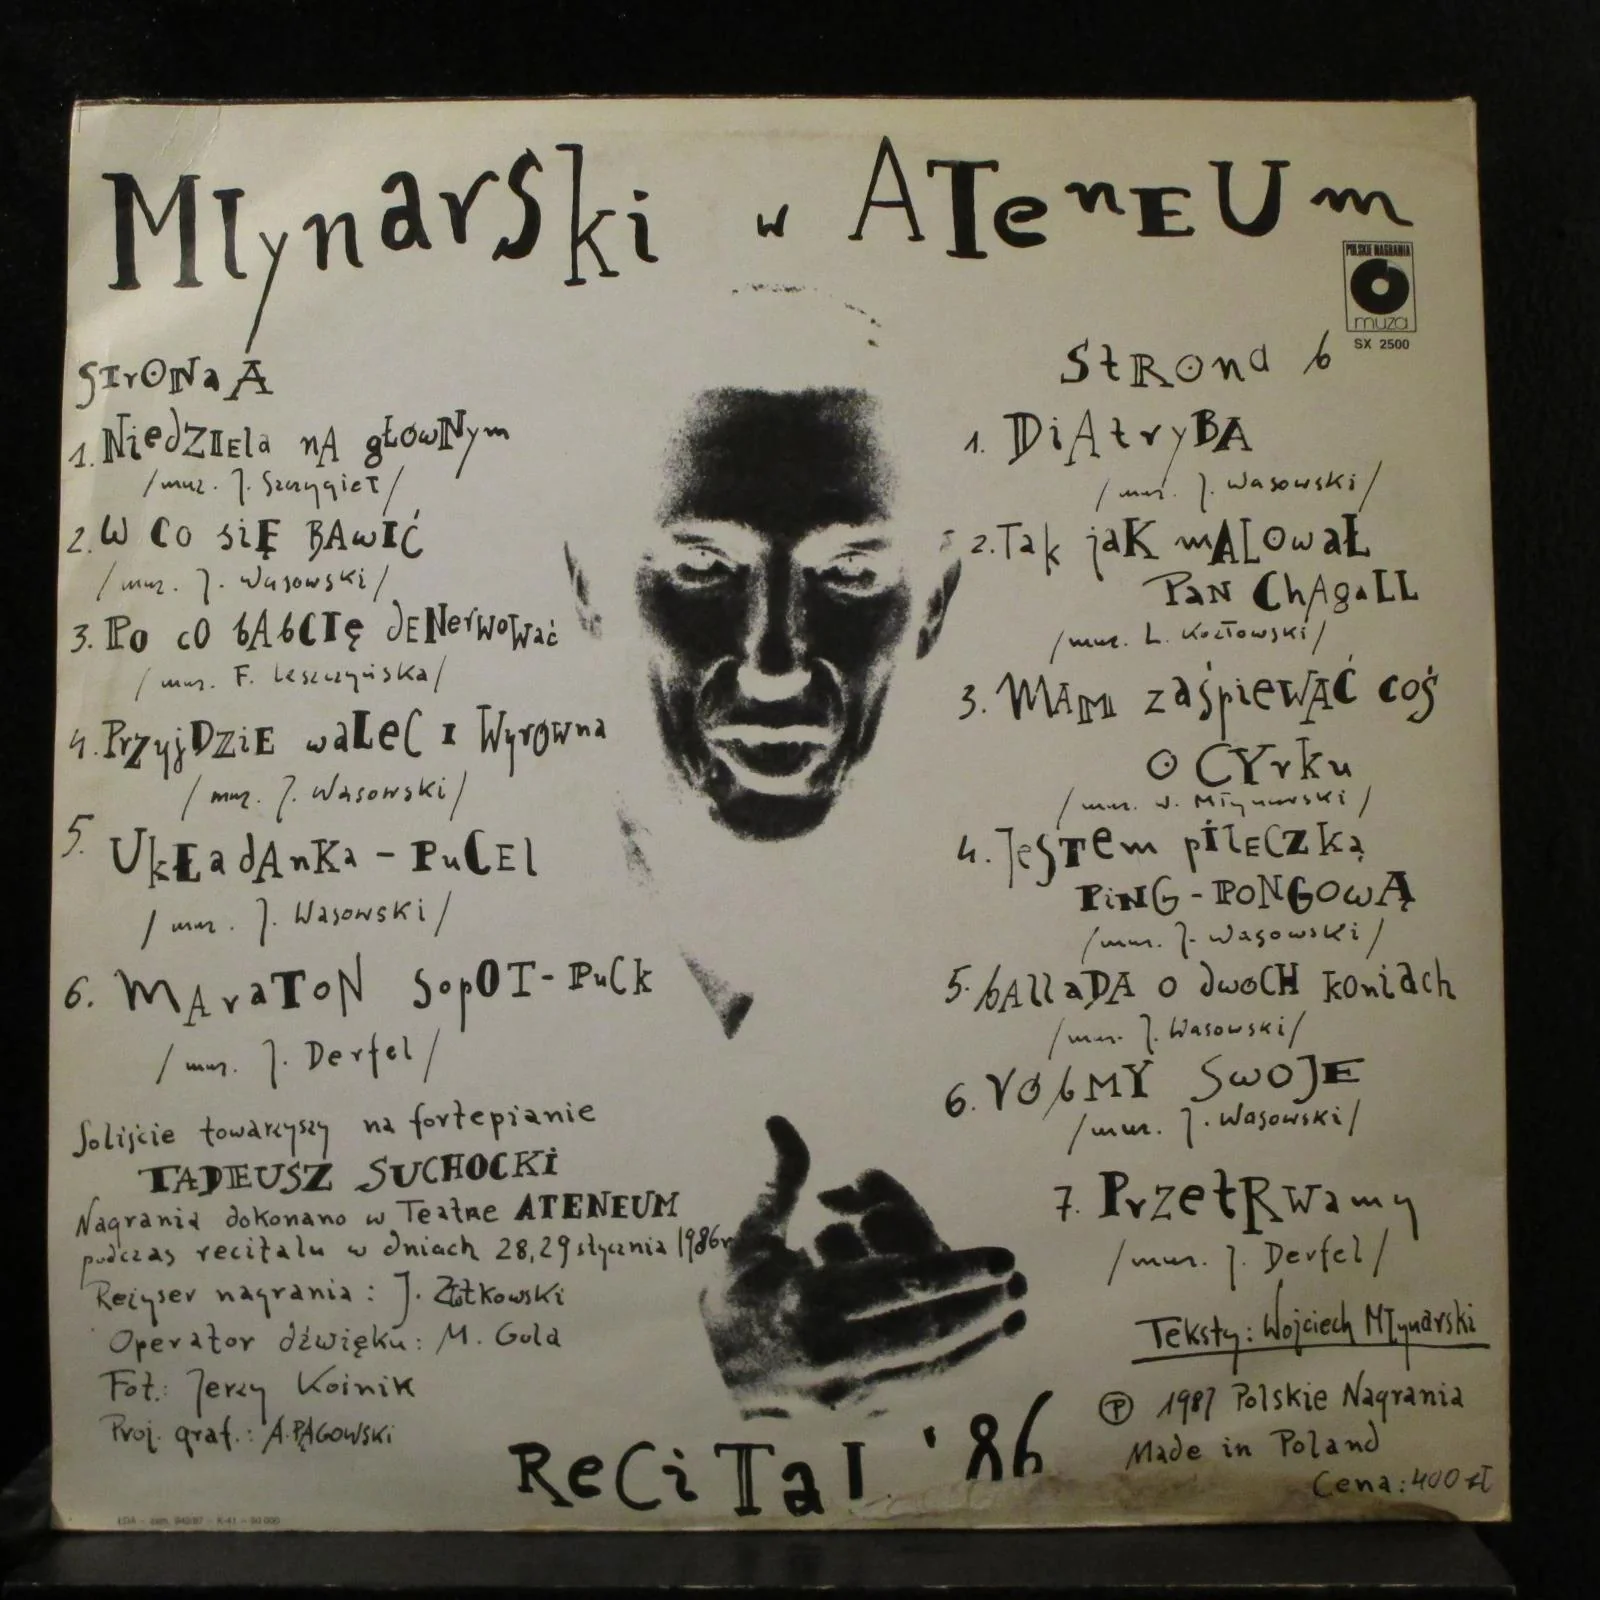 Młynarski w ATeneum
POLSKIE NAGRANIA
muza
SX 2500
Strona A
1. Niedziela na głównym
/muz. J. Szczygieł/
2. W co się bawić
/muz. J. Wasowski/
3. Po co babcię denerwować
/muz. F. Leszczyńska/
4. Przyjdzie walec i wyrówna
/muz. J. Wasowski/
5. Układanka - Pucel
/muz. J. Wasowski/
6. Maraton Sopot-Puck
/muz. J. Derfel/
Soliście towarzyszy na fortepianie
TADEUSZ SUCHOCKI
Nagrania dokonano w Teatrze ATENEUM
podczas recitalu w dniach 28,29 stycznia 1986r
Reżyser nagrania: J. Złotkowski
Operator dźwięku: M. Gola
Fot.: Jerzy Kośnik
Proj. graf.: A. PĄGOWSKI
Strona b
1. Diatryba
/muz. J. Wasowski/
2. Tak jak malował
Pan Chagall
/muz. L. Kozłowski/
3. Mam zaśpiewać coś
o cyrku
/muz. W. Młynarski/
4. Jestem piłeczką
ping-pongową
/muz. J. Wasowski/
5. ballada o dwóch koniach
/muz. J. Wasowski/
6. róbmy swoje
/muz. J. Wasowski/
7. Przetrwamy
/muz. J. Derfel/
Teksty: Wojciech Młynarski
Ⓟ 1987 Polskie Nagrania
Made in Poland
Cena: 400 zł
Recital '86